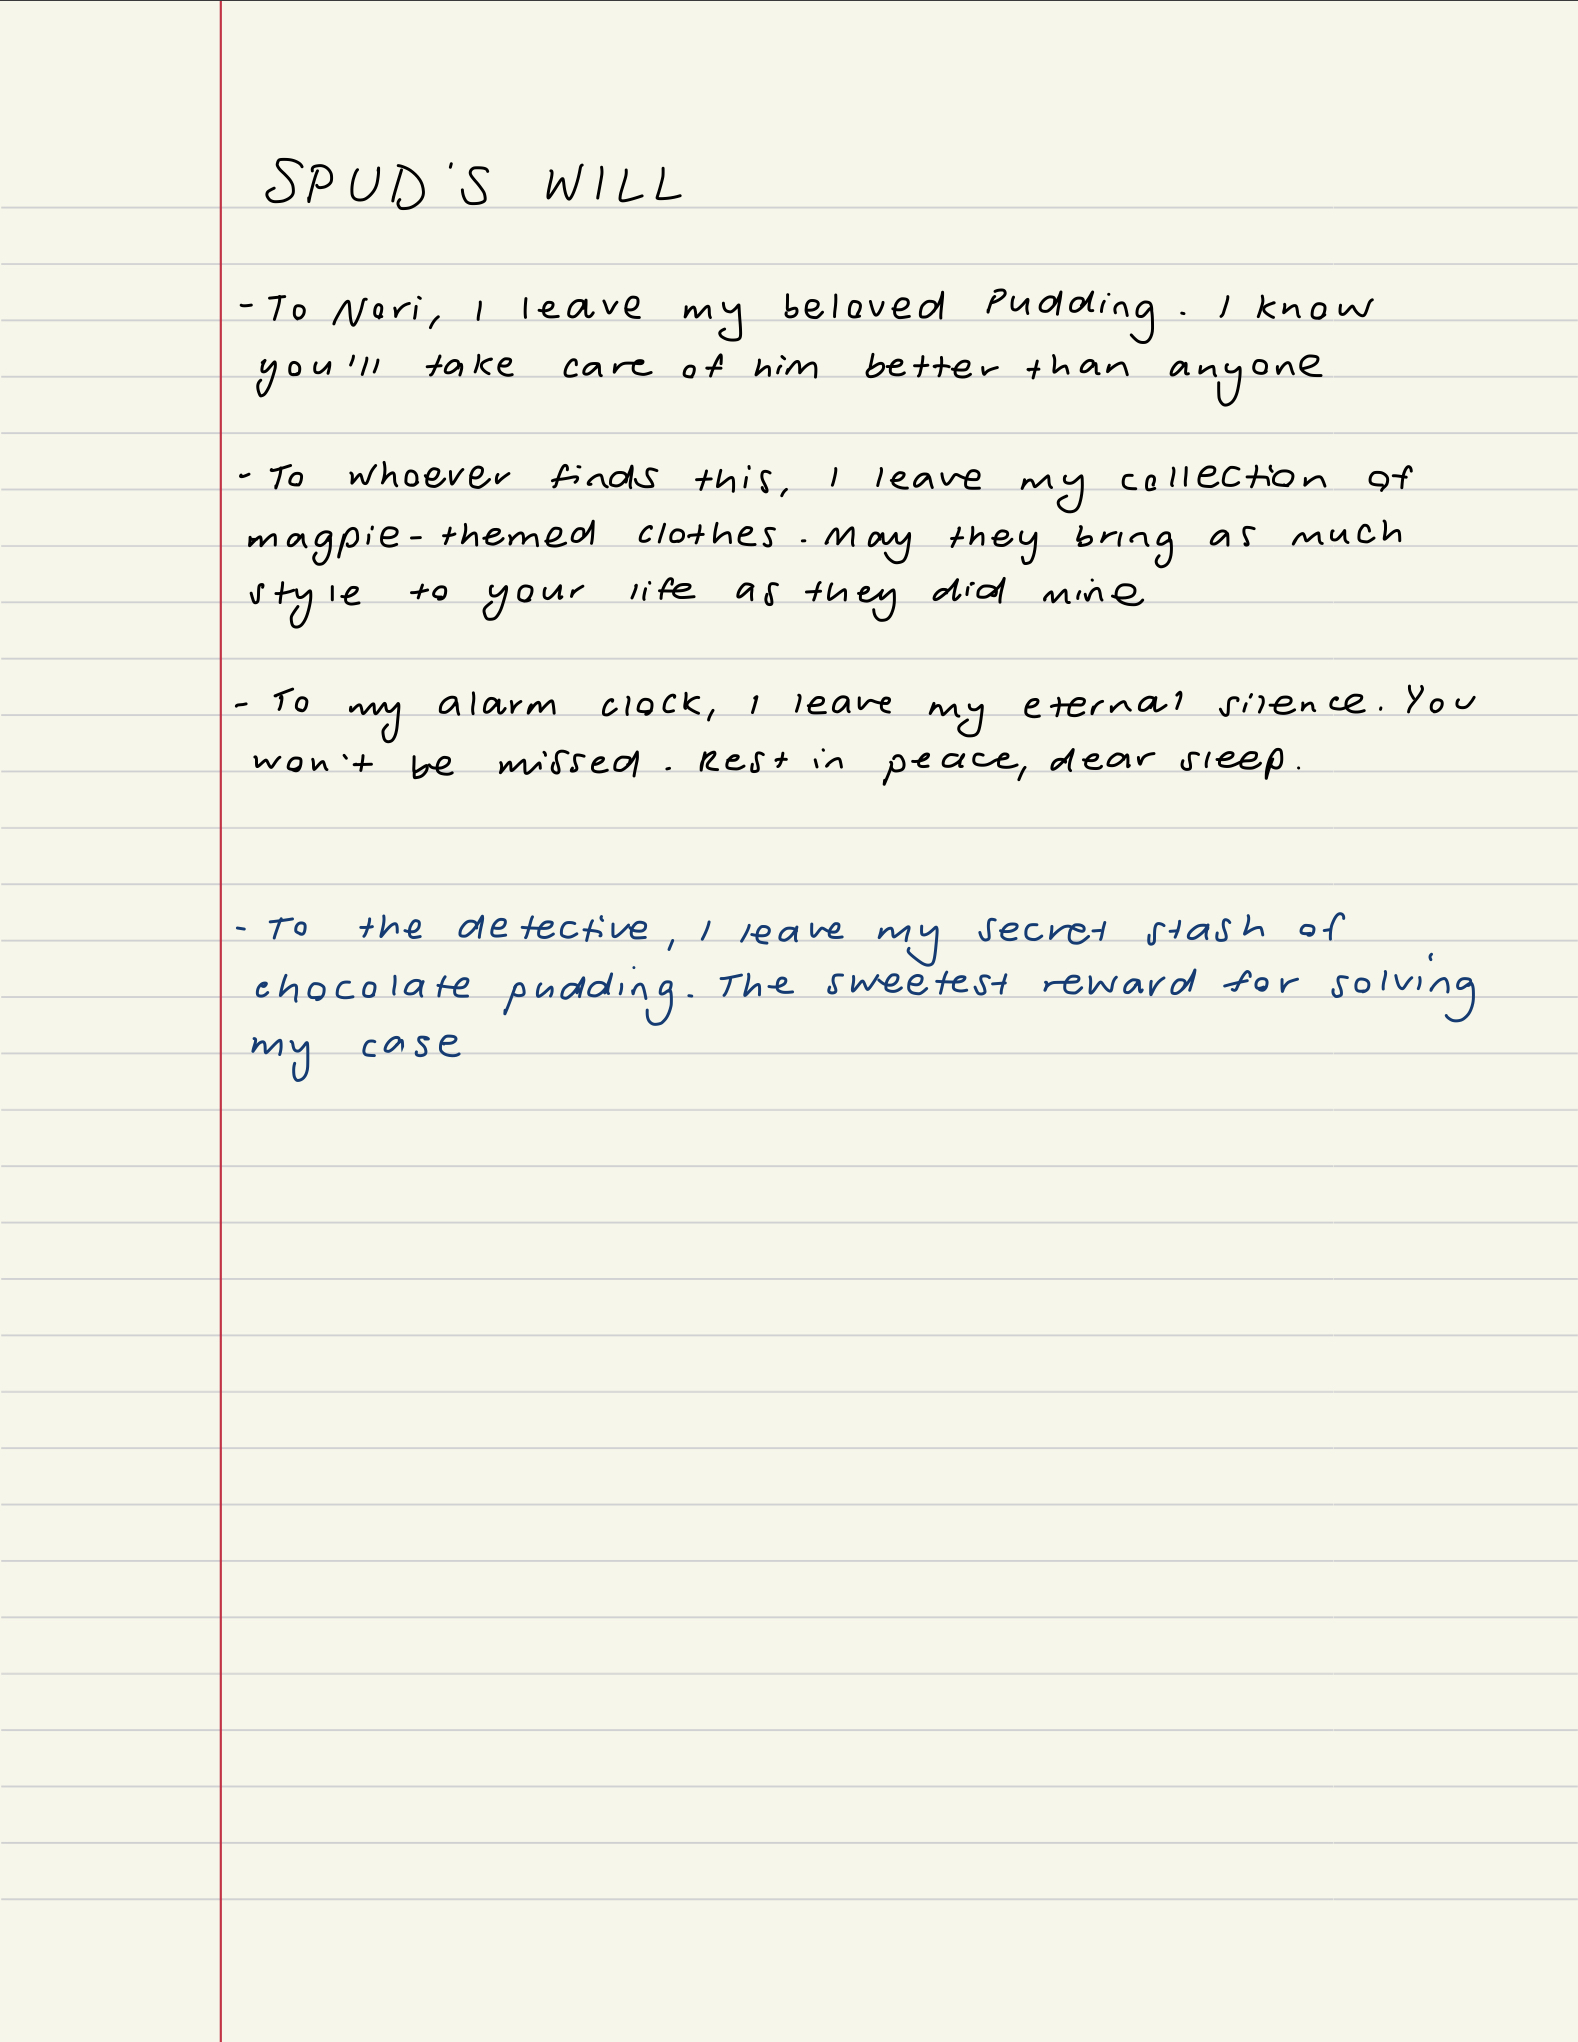 SPUD'S WILL
- To Nori, I leave my beloved Pudding. I know
you'll take care of him better than anyone
- To whoever finds this, I leave my collection of
magpie-themed clothes. May they bring as much
style to your life as they did mine
- To my alarm clock, I leave my eternal silence. You
won't be missed. Rest in peace, dear sleep.
- To the detective, I leave my secret stash of
chocolate pudding. The sweetest reward for solving
my case